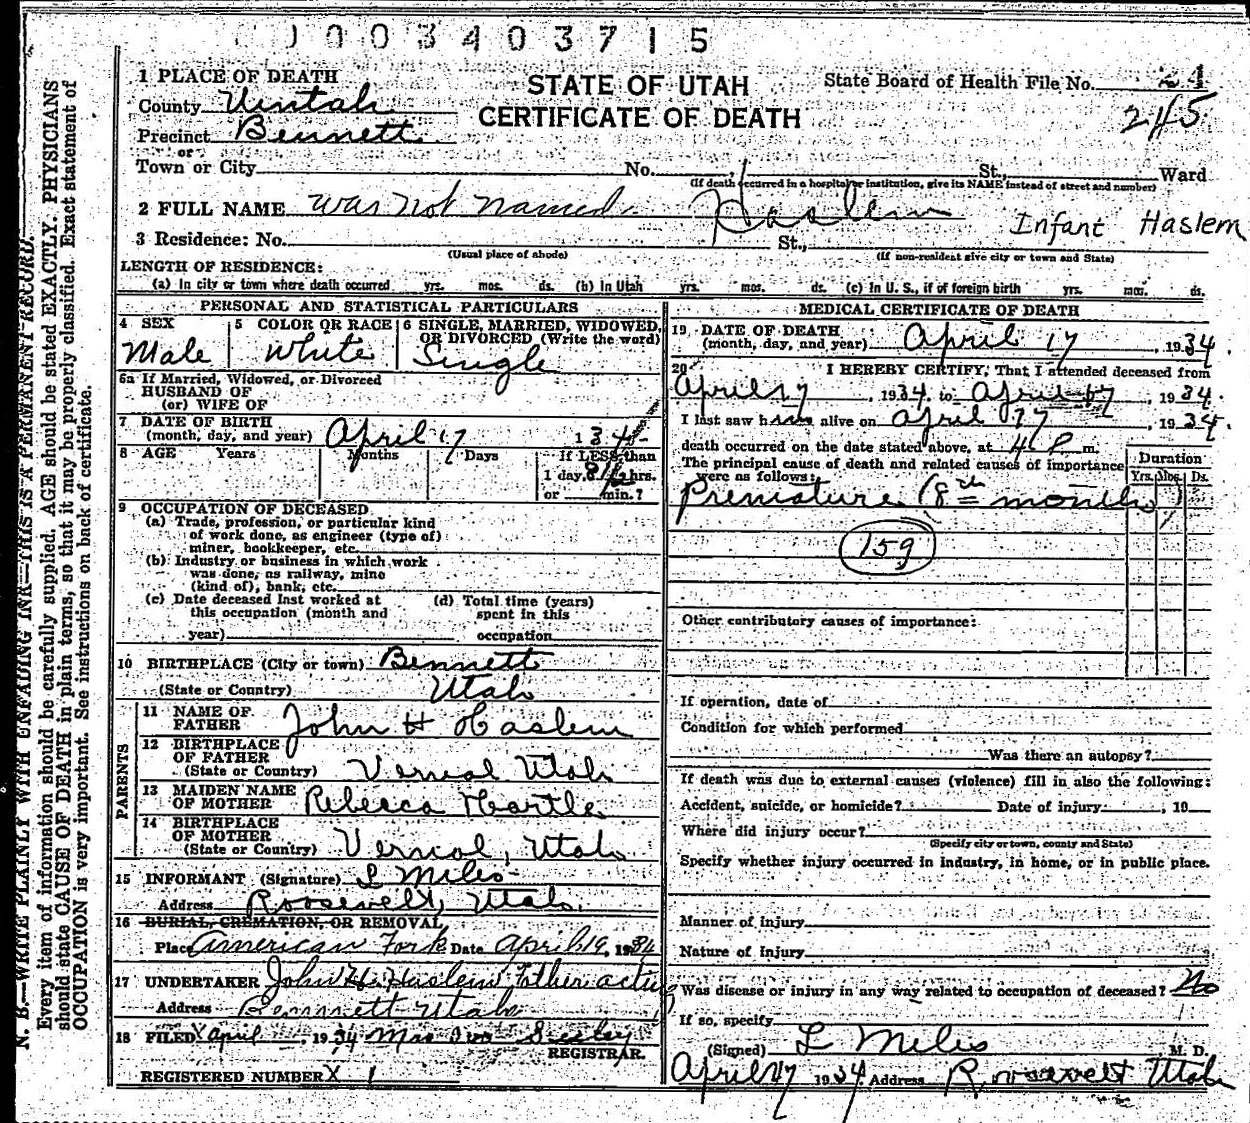 1003403715
STATE OF UTAH
CERTIFICATE OF DEATH
State Board of Health File No. 24
245
1 PLACE OF DEATH
County Uintah
Precinct Bennett
or
Town or City No. St., Ward
(If death occurred in a hospital or institution, give its NAME instead of street and number)
2 FULL NAME was not named Haslem Infant Haslem
3 Residence: No. St.,
(Usual place of abode) (If non-resident give city or town and State)
LENGTH OF RESIDENCE:
(a) In city or town where death occurred yrs. mos. ds. (b) In Utah yrs. mos. ds. (c) In U. S., if of foreign birth yrs. mos. ds.
PERSONAL AND STATISTICAL PARTICULARS
4 SEX Male
5 COLOR OR RACE White
6 SINGLE, MARRIED, WIDOWED, OR DIVORCED (Write the word) Single
6a If Married, Widowed, or Divorced
HUSBAND OF
(or) WIFE OF
7 DATE OF BIRTH
(month, day, and year) April 17 134
8 AGE Years Months Days If LESS than
1 day, 8 1/2 hrs.
or min.?
9 OCCUPATION OF DECEASED
(a) Trade, profession, or particular kind
of work done, as engineer (type of)
miner, bookkeeper, etc.
(b) Industry or business in which work
was done, as railway, mine
(kind of), bank, etc.
(c) Date deceased last worked at
this occupation (month and
year)
(d) Total time (years)
spent in this
occupation
10 BIRTHPLACE (City or town) Bennett
(State or Country) Utah
PARENTS
11 NAME OF
FATHER John H Haslem
12 BIRTHPLACE
OF FATHER
(State or Country) Vernal Utah
13 MAIDEN NAME
OF MOTHER Rebecca Hartle
14 BIRTHPLACE
OF MOTHER
(State or Country) Vernal, Utah
15 INFORMANT (Signature) L Miles
Address Roosevelt, Utah.
16 BURIAL, CREMATION, OR REMOVAL
Place American Fork Date April 19, 1934
17 UNDERTAKER John H. Haslem Father acting
Address Bennett Utah
18 FILED April 1934 Mrs
REGISTRAR.
REGISTERED NUMBER X 1
MEDICAL CERTIFICATE OF DEATH
19 DATE OF DEATH
(month, day, and year) April 17, 1934.
20 I HEREBY CERTIFY, That I attended deceased from
April 17, 1934. to April 17, 1934.
I last saw him alive on April 17, 1934.
death occurred on the date stated above, at 4 P m.
The principal cause of death and related causes of importance
were as follows:
Duration
Yrs. Mos. Ds.
Premature (8th month)
159
Other contributory causes of importance:
If operation, date of
Condition for which performed
Was there an autopsy?
If death was due to external causes (violence) fill in also the following:
Accident, suicide, or homicide? Date of injury , 19
Where did injury occur?
(Specify city or town, county and State)
Specify whether injury occurred in industry, in home, or in public place.
Manner of injury
Nature of injury
Was disease or injury in any way related to occupation of deceased? No
If so, specify
(Signed) L Miles M. D.
April 17 1934 Address Roosevelt Utah
N. B.—WRITE PLAINLY WITH UNFADING INK—THIS IS A PERMANENT RECORD.
Every item of information should be carefully supplied. AGE should be stated EXACTLY. PHYSICIANS
should state CAUSE OF DEATH in plain terms, so that it may be properly classified. Exact statement of
OCCUPATION is very important. See instructions on back of certificate.